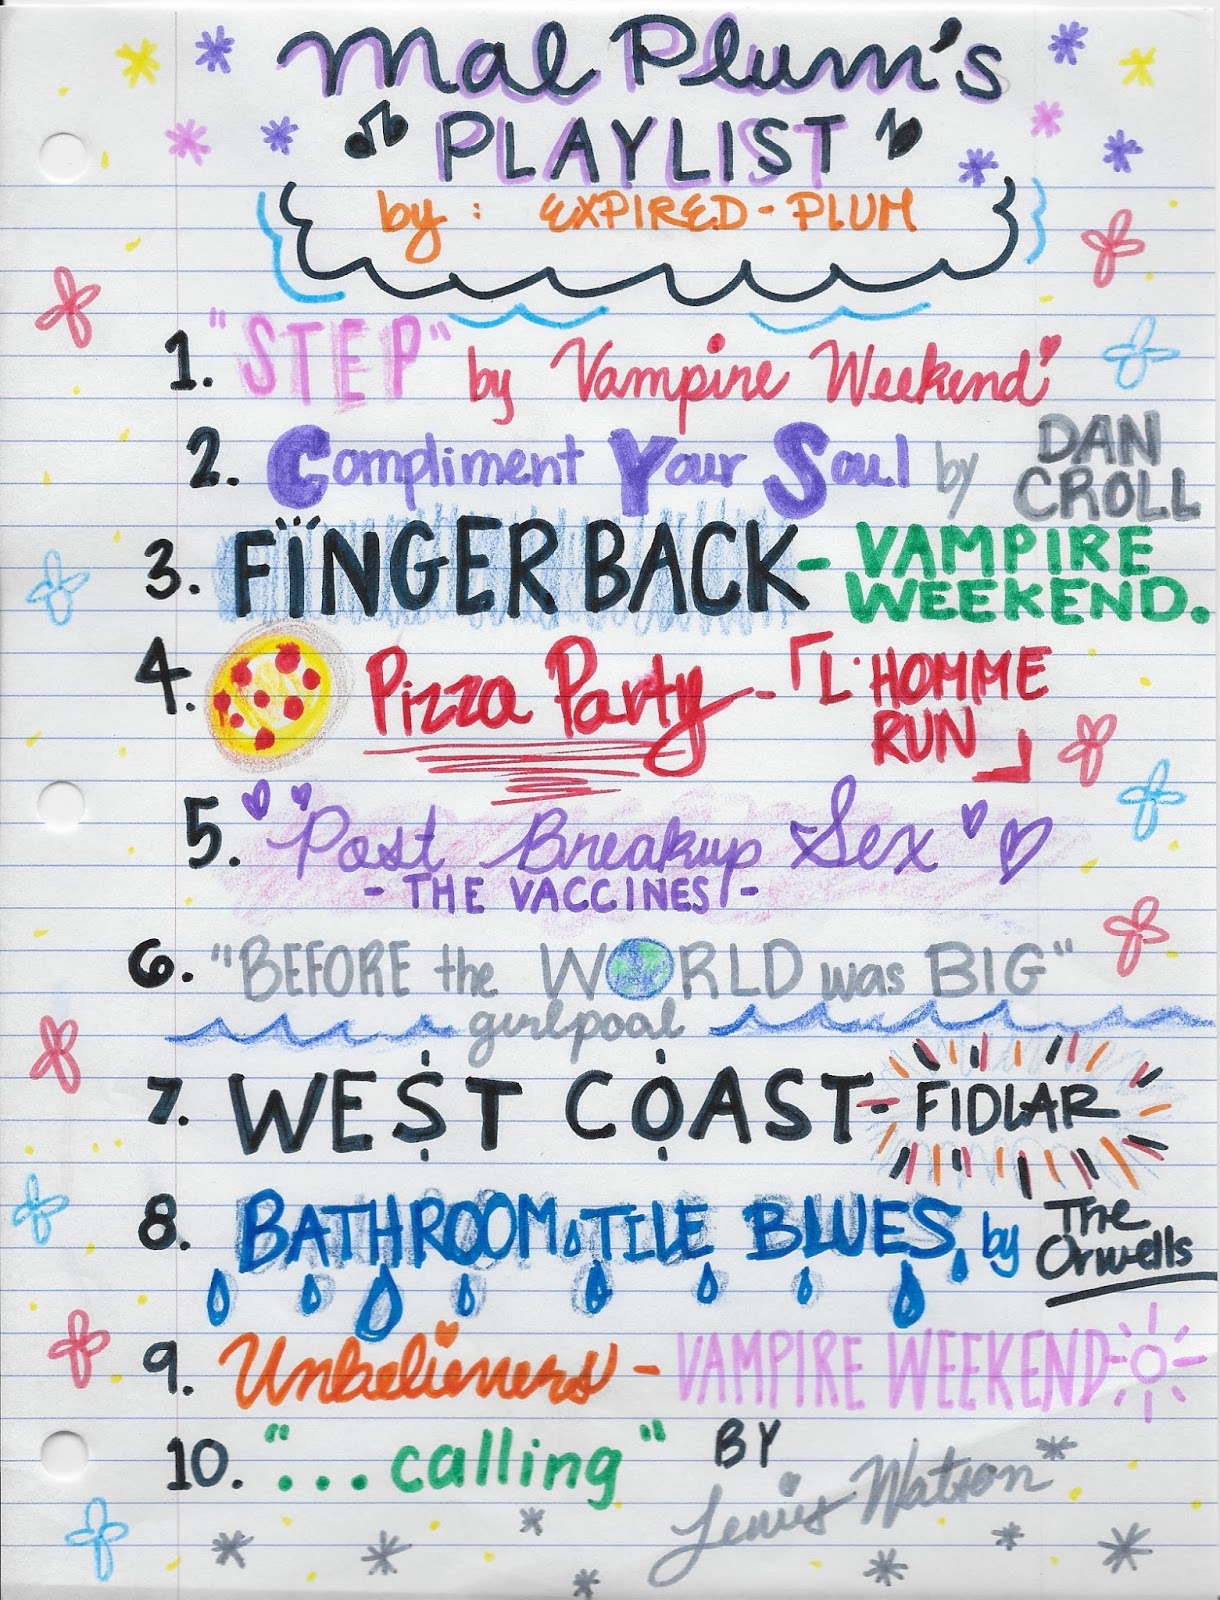 Mal Plum's
PLAYLIST
by: EXPIRED-PLUM
1. "STEP" by Vampire Weekend
2. Compliment Your Soul by DAN CROLL
3. FïNGER BACK - VAMPIRE WEEKEND.
4. Pizza Party - 「L'HOMME RUN」
5. Post Breakup Sex
- THE VACCINES -
6. "BEFORE the WORLD was BIG"
girlpool
7. WEST COAST - FIDLAR
8. BATHROOM TILE BLUES, by The Orwells
9. Unbelievers - VAMPIRE WEEKEND
10. "...calling" BY Lewis Watson